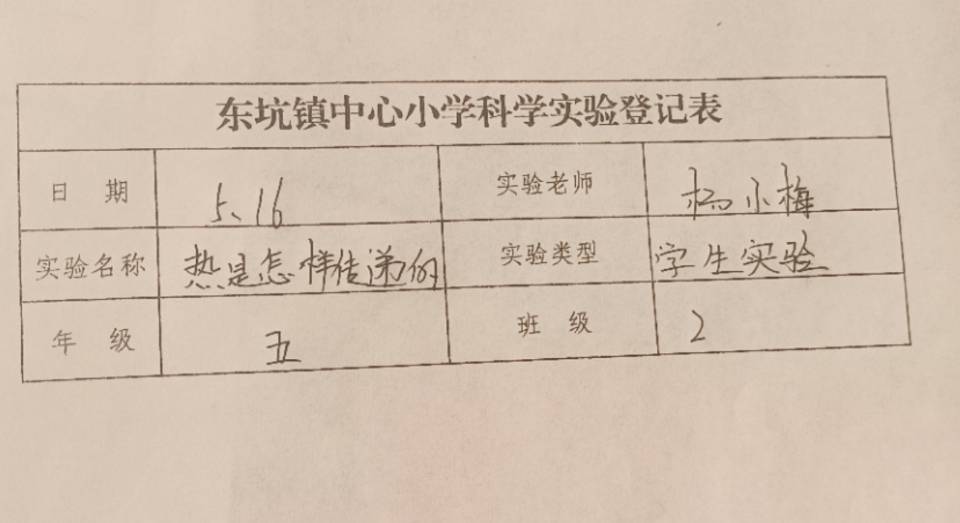 东坑镇中心小学科学实验登记表
日 期 5、16 实验老师 杨小梅
实验名称 热是怎样传递的 实验类型 学生实验
年 级 五 班 级 2